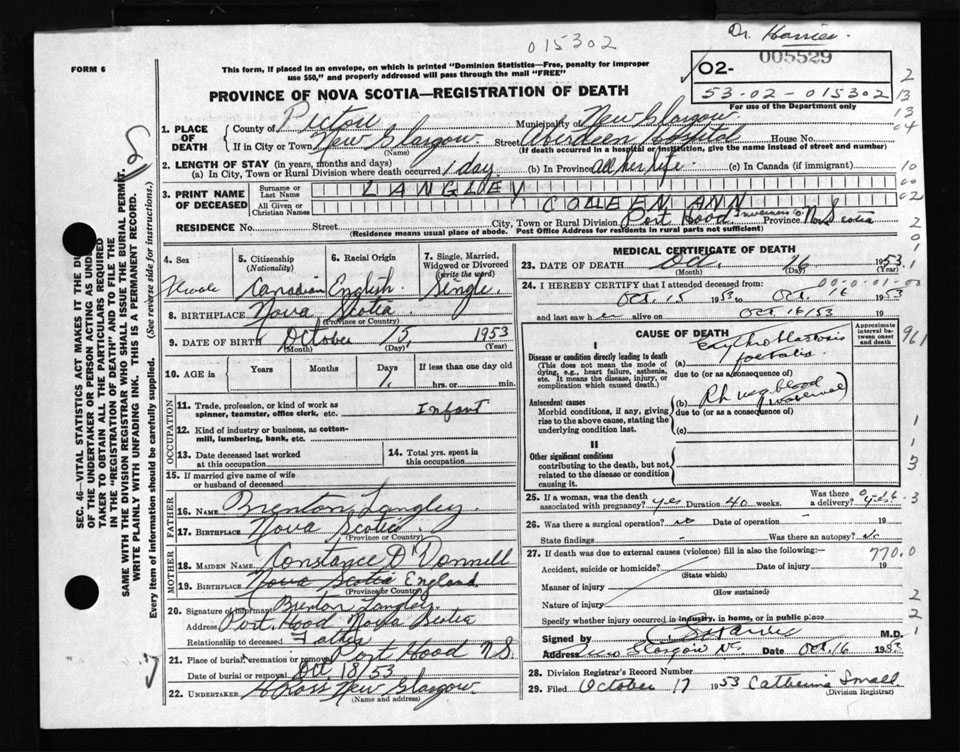 Dr. Harries.
015302
005529
FORM 6
This form, if placed in an envelope, on which is printed "Dominion Statistics—Free, penalty for improper
use $50," and properly addressed will pass through the mail "FREE"
02-
53-02-015302
For use of the Department only
PROVINCE OF NOVA SCOTIA—REGISTRATION OF DEATH
1. PLACE OF DEATH
County of Pictou Municipality of New Glasgow
If in City or Town New Glasgow. Street Aberdeen Hospital House No.
(Name) (If death occurred in a hospital or institution, give the name instead of street and number)
2. LENGTH OF STAY (in years, months and days)
(a) In City, Town or Rural Division where death occurred 1 day. (b) In Province all her life. (c) In Canada (if immigrant)
3. PRINT NAME OF DECEASED
Surname or Last Name LANGLEY
All Given or Christian Names COLEEN ANN
RESIDENCE No. Street City, Town or Rural Division Port Hood Inverness Co Province Nova Scotia
(Residence means usual place of abode. Post Office Address for residents in rural parts not sufficient)
4. Sex
Female
5. Citizenship (Nationality)
Canadian
6. Racial Origin
English
7. Single, Married, Widowed or Divorced (write the word)
Single
8. BIRTHPLACE Nova Scotia
(Province or Country)
9. DATE OF BIRTH October 15 1953
(Month) (Day) (Year)
10. AGE in Years Months Days 1 If less than one day old
hrs. or min.
OCCUPATION
11. Trade, profession, or kind of work as spinner, teamster, office clerk, etc. Infant
12. Kind of industry or business, as cotton-mill, lumbering, bank, etc.
13. Date deceased last worked at this occupation
14. Total yrs. spent in this occupation
15. If married give name of wife or husband of deceased
FATHER
16. Name Brenton Langley
17. Birthplace Nova Scotia
(Province or Country)
MOTHER
18. MAIDEN NAME Constance O'Donnell
19. BIRTHPLACE Nova Scotia England
(Province or Country)
20. Signature of informant Brenton Langley
Address Port Hood Nova Scotia
Relationship to deceased Father
21. Place of burial, cremation or removal Port Hood N.S.
Date of burial or removal Oct. 18/53
22. UNDERTAKER Ross New Glasgow
(Name and address)
MEDICAL CERTIFICATE OF DEATH
23. DATE OF DEATH Oct. 16 1953
(Month) (Day) (Year)
24. I HEREBY CERTIFY that I attended deceased from:
Oct. 15 1953 to Oct. 16 1953
and last saw her alive on Oct 16/53
CAUSE OF DEATH
Approximate interval between onset and death
I
Disease or condition directly leading to death
(This does not mean the mode of dying, e.g., heart failure, asthenia, etc. It means the disease, injury, or complication which caused death.)
(a) Erythroblastosis foetalis
due to (or as a consequence of)
Antecedent causes
Morbid conditions, if any, giving rise to the above cause, stating the underlying condition last.
(b) Rh neg blood (maternal)
due to (or as a consequence of)
(c)
II
Other significant conditions
contributing to the death, but not related to the disease or condition causing it.
961
25. If a woman, was the death associated with pregnancy? yes Duration 40 weeks. Was there a delivery? yes
26. Was there a surgical operation? no Date of operation 19
State findings Was there an autopsy? no
27. If death was due to external causes (violence) fill in also the following:- 770.0
Accident, suicide or homicide? Date of injury 19
(State which)
Manner of injury
(How sustained)
Nature of injury
Specify whether injury occurred in industry, in home, or in public place
Signed by Harries M.D.
Address New Glasgow NS Date Oct. 16 1953
28. Division Registrar's Record Number
29. Filed October 17 1953 Catherine Small
(Division Registrar)
SEC. 46—VITAL STATISTICS ACT MAKES IT THE DU
OF THE UNDERTAKER OR PERSON ACTING AS UND
TAKER TO OBTAIN ALL THE PARTICULARS REQUIRED
IN THE "REGISTRATION OF DEATH" AND TO FILE THE
SAME WITH THE DIVISION REGISTRAR WHO SHALL ISSUE THE BURIAL PERMIT.
WRITE PLAINLY WITH UNFADING INK. THIS IS A PERMANENT RECORD.
Every item of information should be carefully supplied. (See reverse side for instructions.)